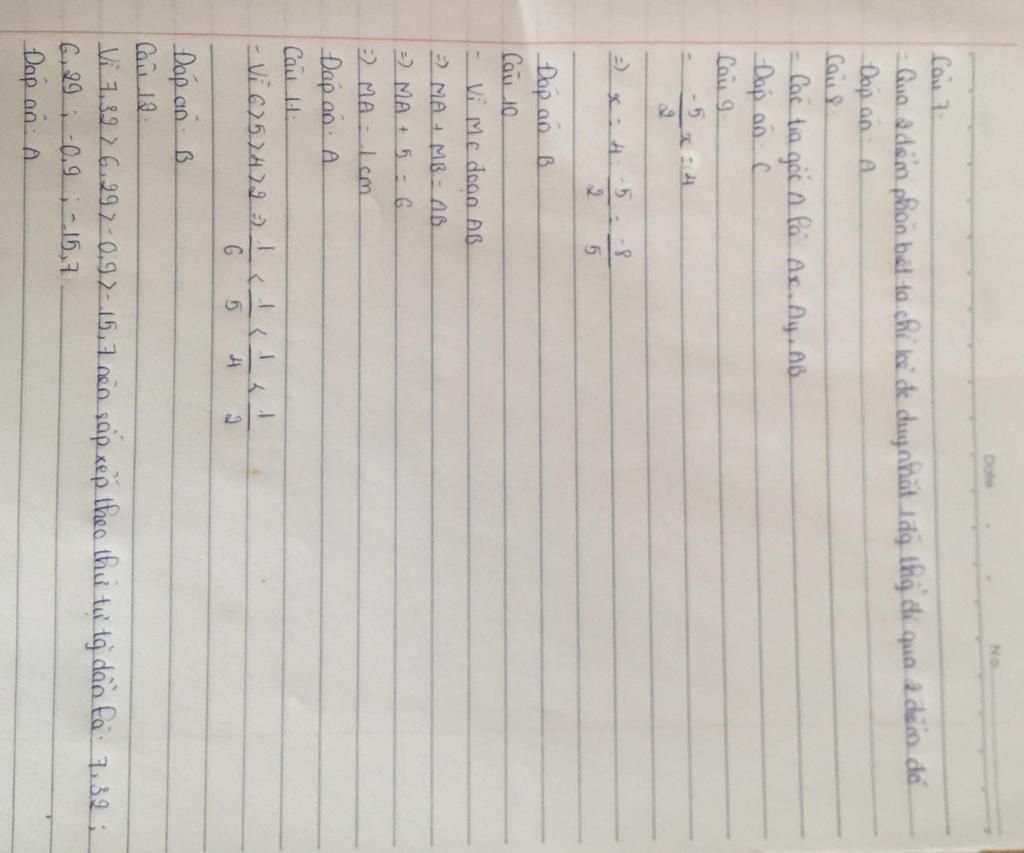 Date
No.
Câu 7:
- Qua 2 điểm phân biệt ta chỉ kẻ đc duy nhất 1 đg thg đi qua 2 điểm đó
Đáp án: A
Câu 8:
- Các tia gốc A là Ax, Ay, AB
Đáp án: C
Câu 9:
- -5/2 x = 4
=) x = 4 . -5/2 = -8/5
Đáp án: B
Câu 10
- Vì M ∈ đoạn AB
=) MA + MB = AB
=) MA + 5 = 6
=) MA = 1 cm
Đáp án: A
Câu 11:
- Vì 6 > 5 > 4 > 2 =) 1/6 < 1/5 < 1/4 < 1/2
Đáp án: B
Câu 12:
Vì 7,32 > 6,29 > -0,9 > -15,7 nên sắp xếp theo thứ tự tg dần là: 7,32 ;
6,29 ; -0,9 ; -15,7
Đáp án: A